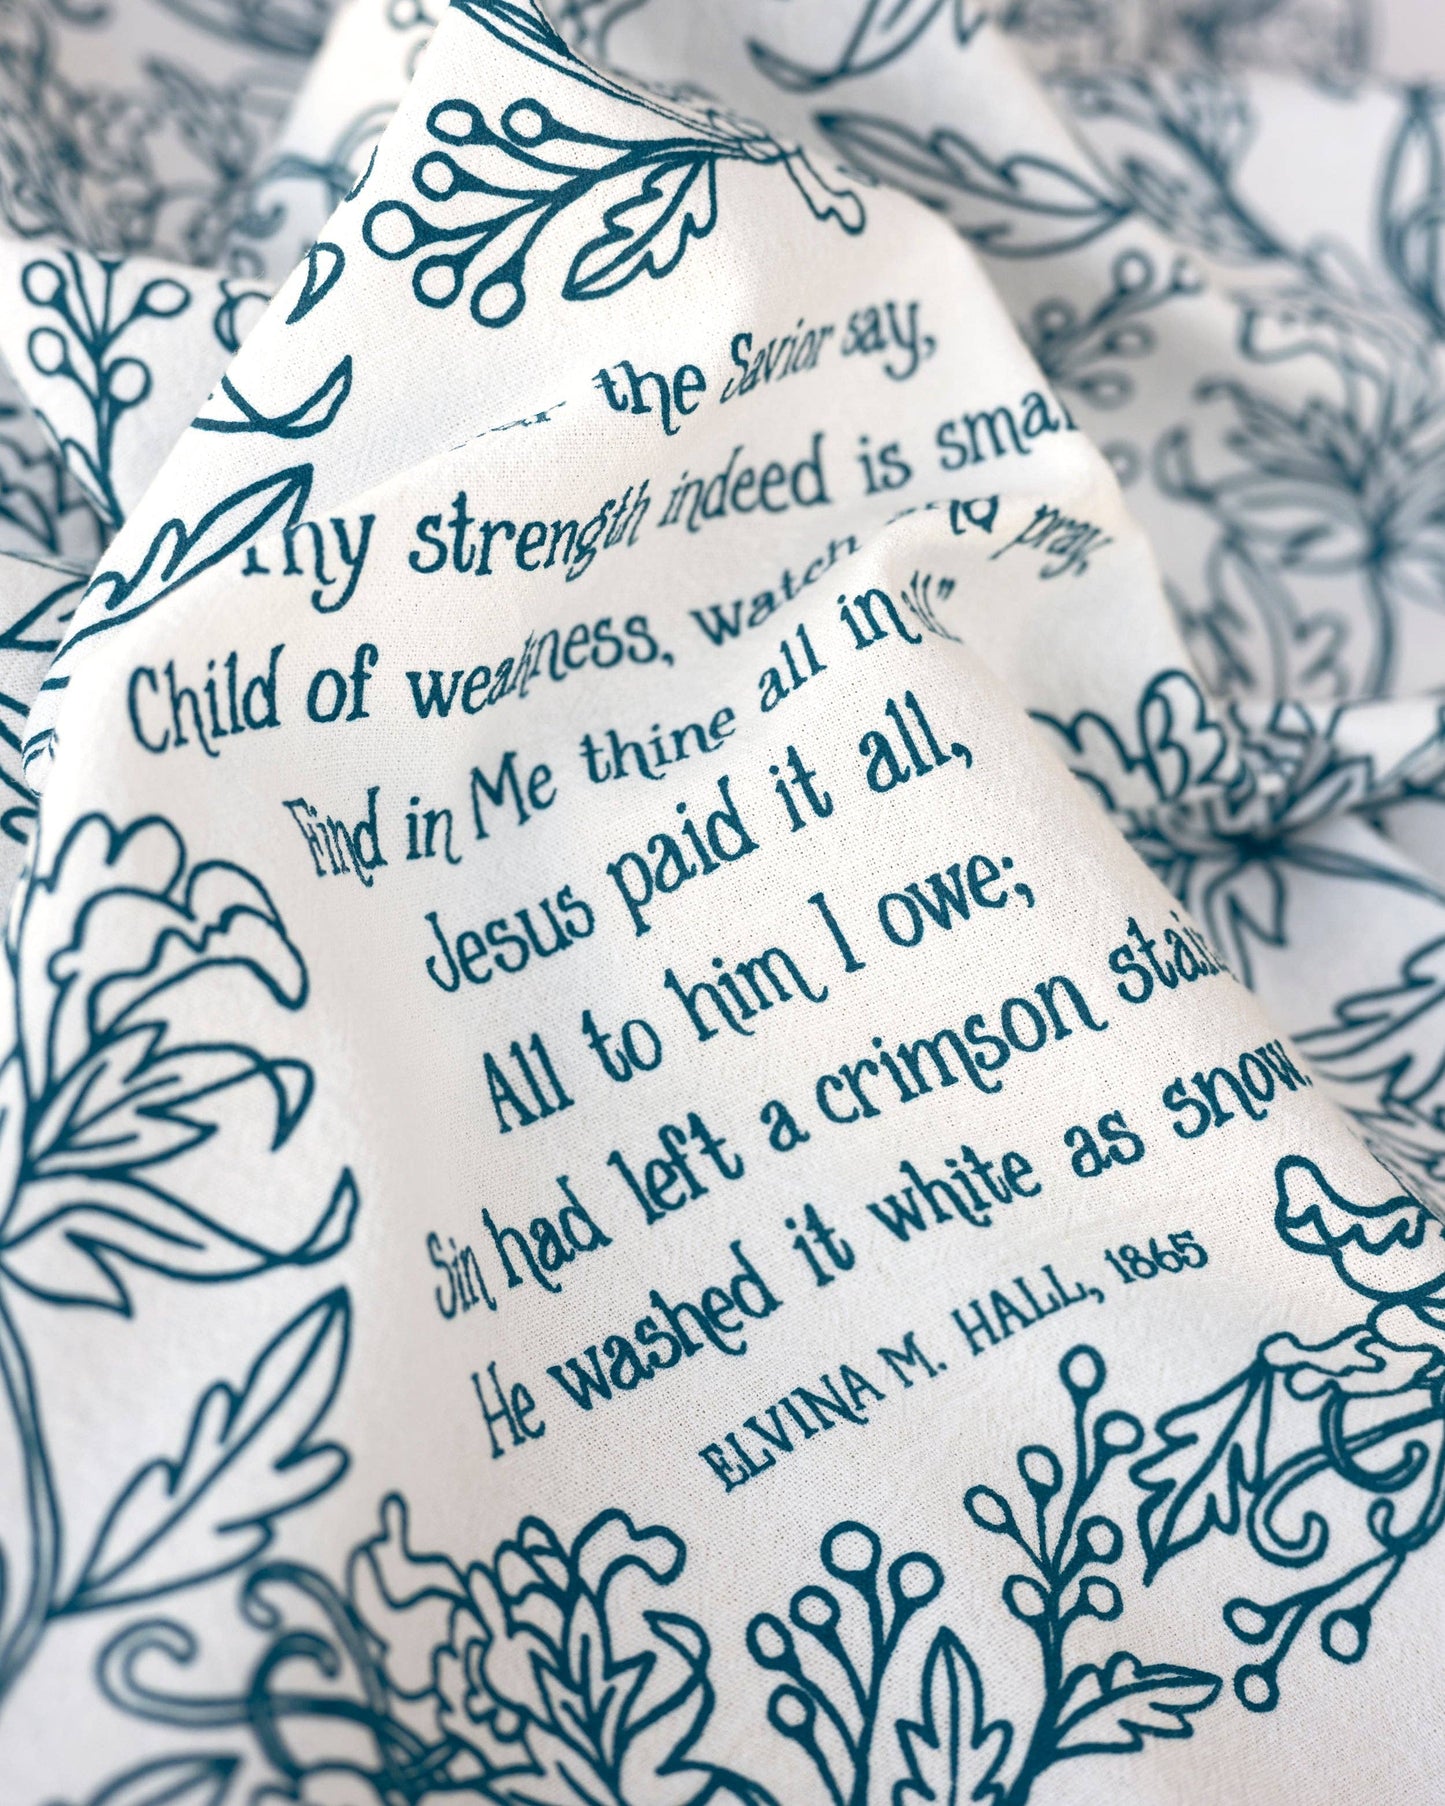 the Savior say,
Thy strength indeed is smal
Child of weakness, watch and pray,
Find in Me thine all in all"
Jesus paid it all,
All to him I owe;
Sin had left a crimson stain
He washed it white as snow.
ELVINA M. HALL, 1865